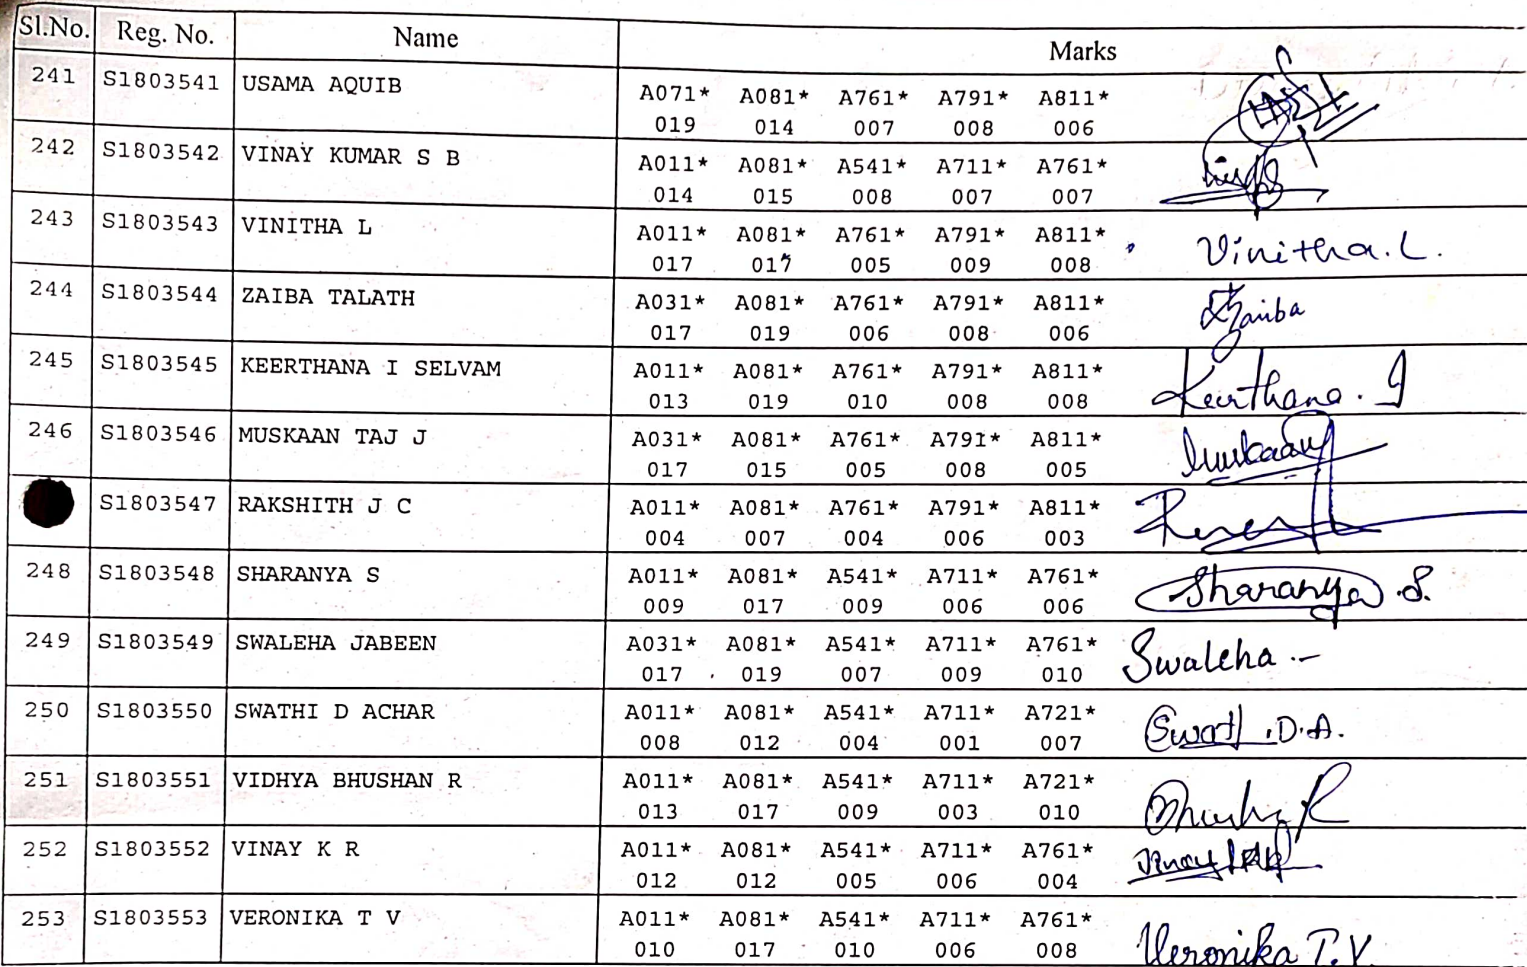 Sl.No. Reg. No. Name Marks
241 S1803541 USAMA AQUIB A071* A081* A761* A791* A811*
019 014 007 008 006
242 S1803542 VINAY KUMAR S B A011* A081* A541* A711* A761*
014 015 008 007 007
243 S1803543 VINITHA L A011* A081* A761* A791* A811* Vinitha.L.
017 017 005 009 008
244 S1803544 ZAIBA TALATH A031* A081* A761* A791* A811* Zaiba
017 019 006 008 006
245 S1803545 KEERTHANA I SELVAM A011* A081* A761* A791* A811* Keerthana. I
013 019 010 008 008
246 S1803546 MUSKAAN TAJ J A031* A081* A761* A791* A811* Muskaan
017 015 005 008 005
S1803547 RAKSHITH J C A011* A081* A761* A791* A811*
004 007 004 006 003
248 S1803548 SHARANYA S A011* A081* A541* A711* A761* Sharanya.S.
009 017 009 006 006
249 S1803549 SWALEHA JABEEN A031* A081* A541* A711* A761* Swaleha
017 019 007 009 010
250 S1803550 SWATHI D ACHAR A011* A081* A541* A711* A721* Swathi .D.A.
008 012 004 001 007
251 S1803551 VIDHYA BHUSHAN R A011* A081* A541* A711* A721*
013 017 009 003 010
252 S1803552 VINAY K R A011* A081* A541* A711* A761*
012 012 005 006 004
253 S1803553 VERONIKA T V A011* A081* A541* A711* A761* Veronika T.V.
010 017 010 006 008